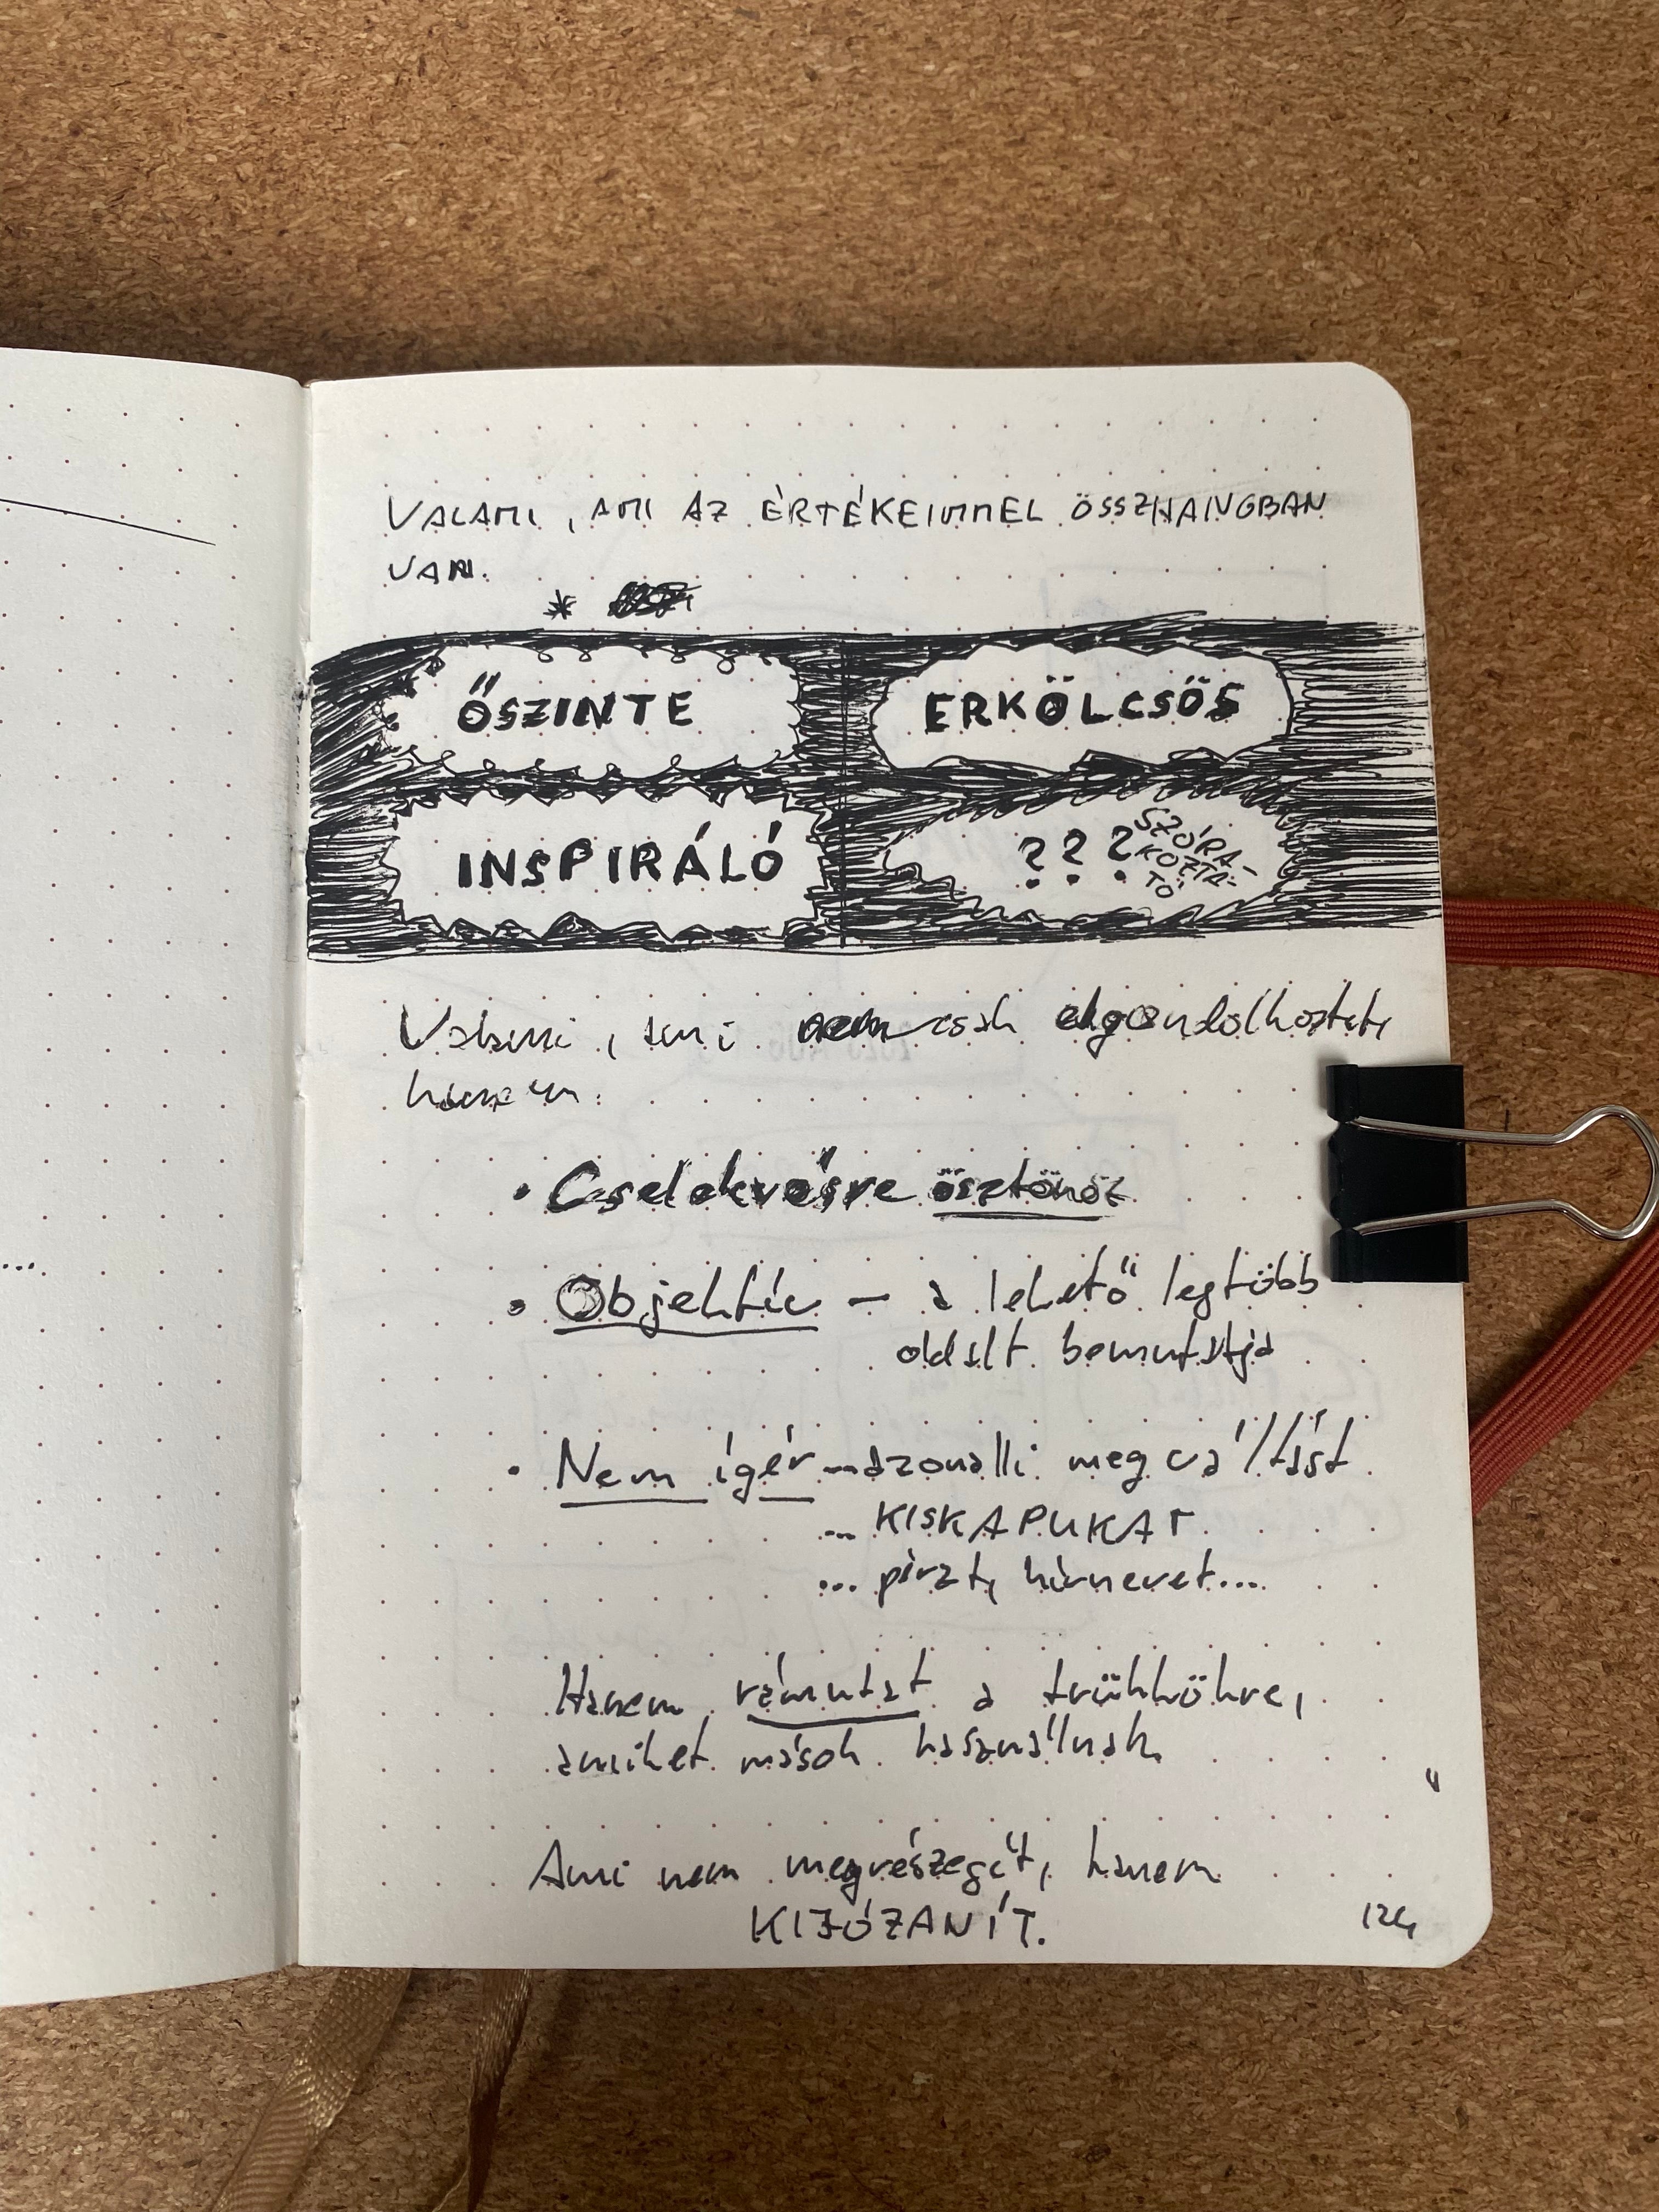 VALAMI, AMI AZ ÉRTÉKEIMMEL ÖSSZHANGBAN
VAN.
*
ŐSZINTE
ERKÖLCSÖS
INSPIRÁLÓ
??? SZÓRA-
KOZTA-
TÓ
Valami, ami nem csak elgondolkoztat,
hanem:
• Cselekvésre ösztönöz
• Objektív – a lehető legtöbb
oldalt bemutatja
• Nem ígér ...azonnali megváltást
... KISKAPUKAT
... pénzt, hírnevet...
Hanem rámutat a trükkökre,
amiket mások használnak
Ami nem megrészegít, hanem
KIJÓZANÍT.
124